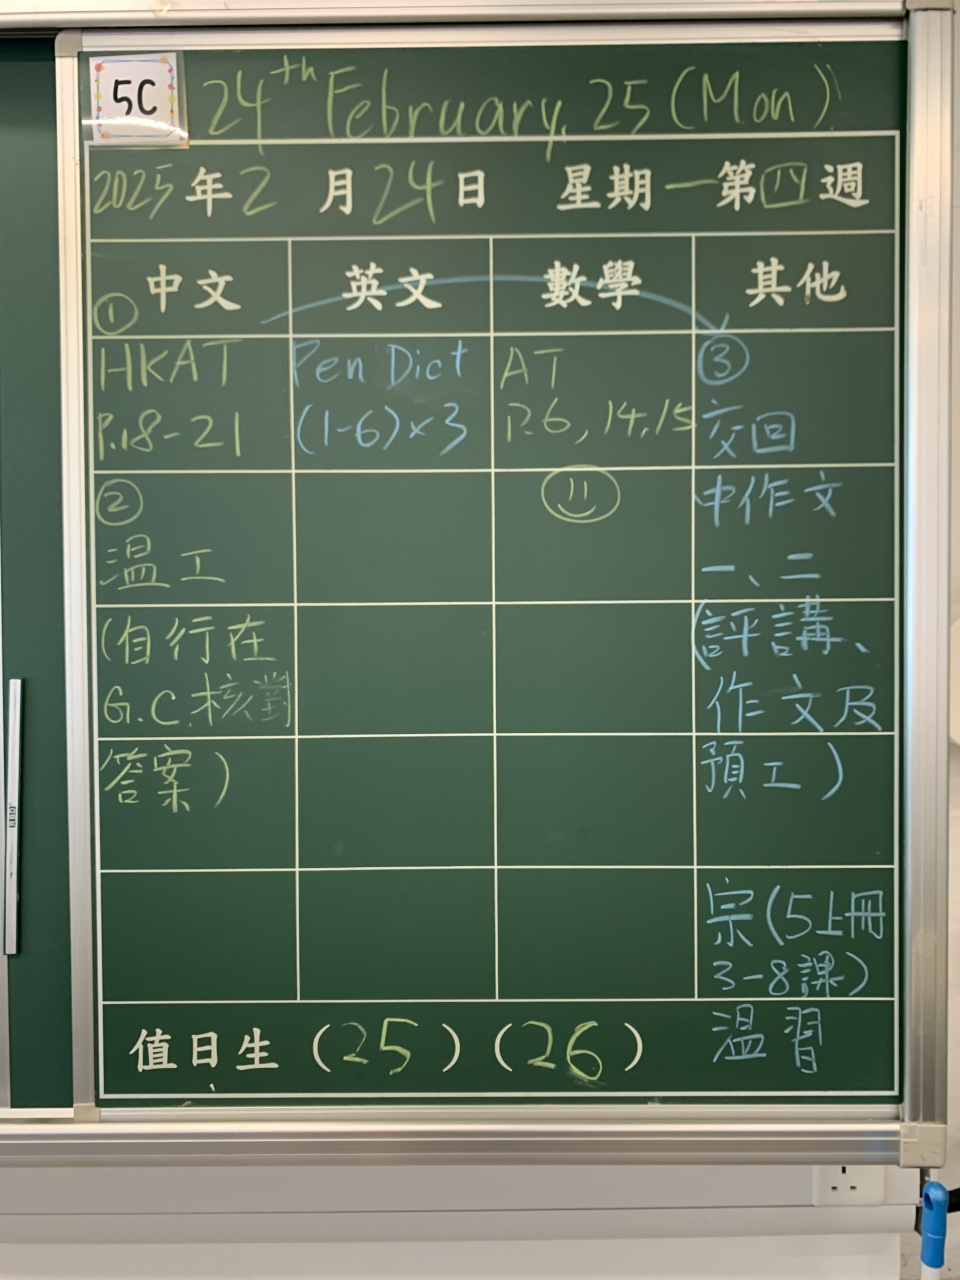 5C
24th February, 25 (Mon)
2025年2月24日 星期一第四週
中文 英文 數學 其他
①
HKAT
P.18-21
②
温工
(自行在
G.C.核對
答案)
Pen Dict
(1-6)×3
AT
P.6, 14, 15
③
交回
中作文
一、二
(評講、
作文及
預工)
宗(5上冊
3-8課)
温習
值日生 (25) (26)